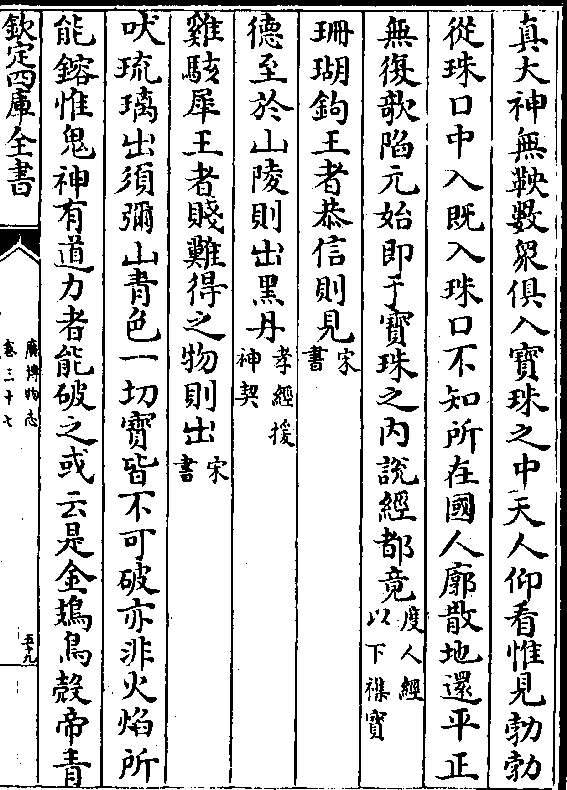 真大神無鞅數衆俱入寶珠之中天人仰看惟見勃勃
從珠口中入既入珠口不知所在國人廓散地還平正
無復歌陷元始即于寶珠之内説經都竟度人經以下襍寶
珊瑚鉤王者恭信則見宋書
德至於山陵則出黑丹孝經援神契
雞駭犀王者賤難得之物則出宋書
吠琉璃出須彌山青色一切寶皆不可破亦非火焰所
能鎔惟鬼神有道力者能破之或云是金鳥殻帝青
欽定四庫全書
廣博物志
卷三十七
五十九